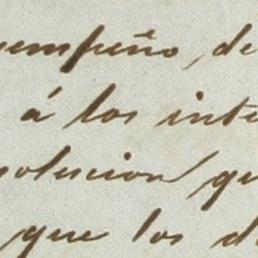 sempeño, de
á los inte
solucion qu
que los d